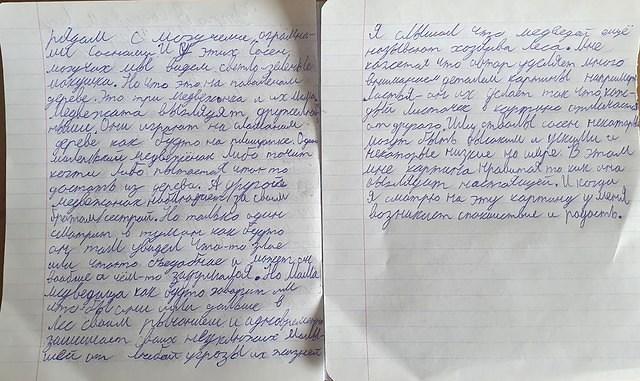 рядом с могучеми огромны-
ми соснами. И У этих сосен
могучих мы видем светло-зелёные
Но что это на поваленом
дереве. Это три медвежонка и их мама.
Медвежата выглядят дружелюб-
ными. Они играют на сломаном
дереве как будто на площадке. Один
маленький медвежёнок либо точит
когти либо пытается что-то
достать из дерева. А другой
медвежонок наблюдает за своим
братом/сестрой. Но только один
смотрит в туман как будто
он там увидел что-то злое
или что-то съедобное а может он
вообще о чём-то задумался. Но мама
медведица как будто говорит им
что-бы они шли дальше в
лес своим рычанием и одновременно
защищает своих неуклюжих малы-
шей от любой угрозы их жизней
Я слышал что медведей ещё
называют хозяева леса. Мне
кажется что автор уделяет много
внимание деталям картины например
листья-он их делает так что каж-
дый листочек в картине отличается
от другого. Или стволы сосен некоторые
могут быть высоким и узкими и
некоторые низкие но шире. В этом
мне картина нравится то как она
выглядит настоящей. И когда
я смотрю на эту картину у меня
возникает спокойствие и радость.